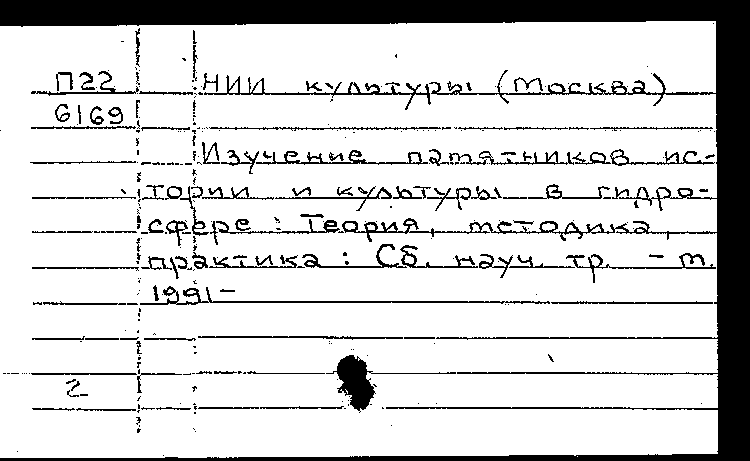 П22 НИИ культуры (Москва)
6169
Изучение памятников ис-
тории и культуры в гидро-
сфере : Теория, методика,
практика : Сб. науч. тр. - м.
1991-
2